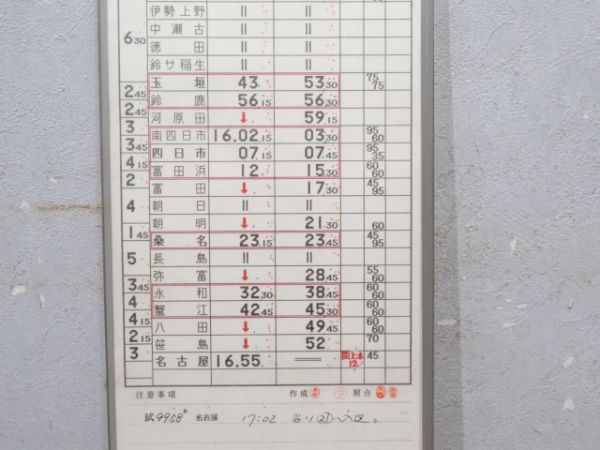 伊勢上野 || ||
6 30
中瀬古 || ||
徳田 || ||
鈴サ稲生 || ||
玉垣 43 53 30 75 75
2 45
鈴鹿 56 15 56 30
2 45
河原田 ↓ 59 15
3
南四日市 16.02 15 03 30 95 60
3 45
四日市 07 15 07 45 95 35
4 15
富田浜 12 15 30 60 60
2
富田 ↓ 17 30 45 95
4
朝日 || ||
朝明 ↓ 21 30 60
1 45
桑名 23 15 23 45 45 95
5
長島 || ||
弥富 ↓ 28 45 55 60
3 45
永和 32 30 38 45 60 60
4
蟹江 42 45 45 30 60 60
4 15
八田 ↓ 49 45 60 60
2 15
笹島 ↓ 52 70
3
名古屋 16.55 == 関上本 12 45
注意事項 作成 照合
試9958 名古屋 17:02